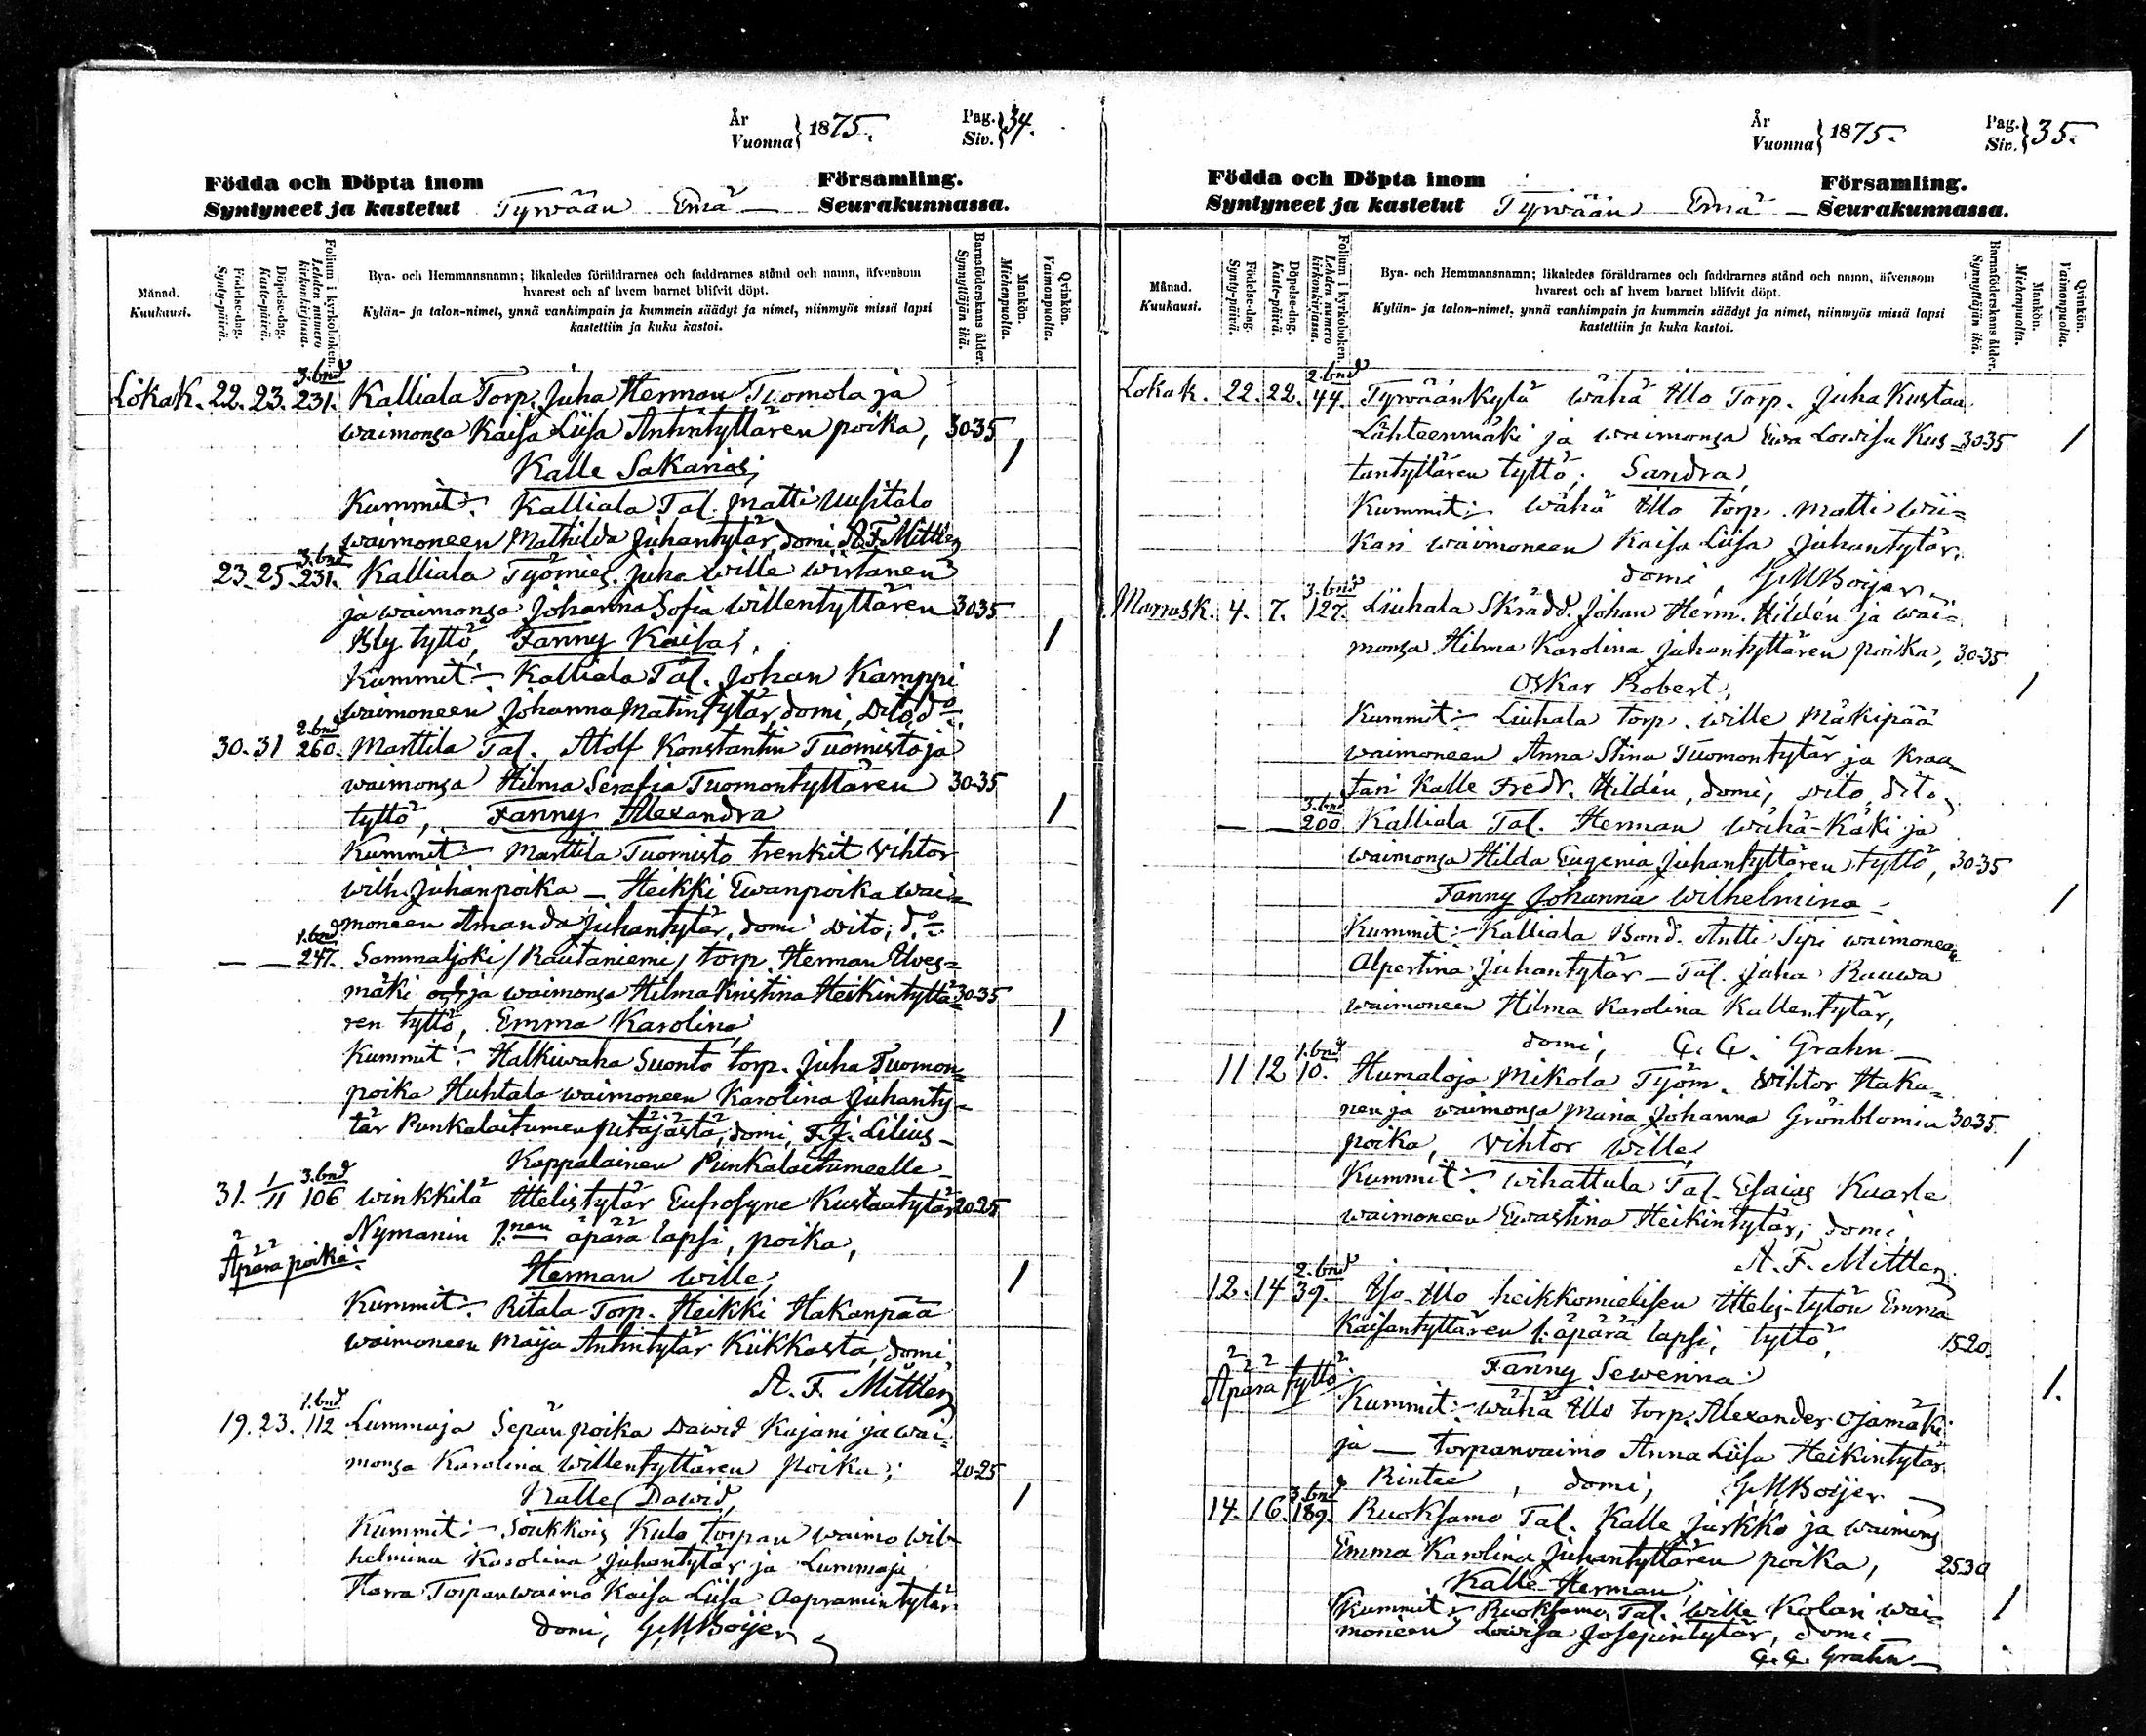 År
Vuonna } 1875.
Pag.
Siv. } 34.
Födda och Döpta inom Församling.
Syntyneet ja kastetut Tyrvään Emä — Seurakunnassa.
Månad.
Kuukausi.
Födelse-dag.
Synty-päivä.
Döpelse-dag.
Kaste-päivä.
Folium i kyrkoboken.
Lehden numero
kirkonkirjassa.
Bya- och Hemmansnamn; likaledes föräldrarnes och faddrarnes stånd och namn, äfvensom
hvarest och af hvem barnet blifvit döpt.
Kylän- ja talon-nimet, ynnä vanhimpain ja kummein säädyt ja nimet, niinmyös missä lapsi
kastettiin ja kuka kastoi.
Barnaföderskans ålder.
Synnyttäjän ikä.
Mankön.
Miehenpuolta.
Qvinkön.
Vaimonpuolta.
3. bnd
Lokak. 22. 23. 231. Kalliala Torp. Juha Herman Tuomola ja
waimonsa Kaisa Liisa Antintyttären poika, 30-35
Kalle Sakarias, /
Kummit:- Kalliala Tal. Matti Uusitalo
waimoneen Mathilda Juhantytär, domi A. F. Mittler
3. bnd
23. 25. 231. Kalliala Työmies. Juha Wille Wirtanen
ja waimonsa Johanna Sofia Willentyttären 30-35
Bly tyttö, Fanny Kaisa, /
Kummit:- Kalliala Tal. Johan Kamppi
waimoneen Johanna Matintytär, domi, dito, d:o
2. bnd
30. 31 260. Marttila Tal. Atolf Konstantin Tuomisto ja
waimonsa Hilma Serafia Tuomontyttären 30-35
tyttö, Fanny Alexandra /
Kummit:- Marttila Tuomisto trenkit Vihtor
Wilh. Juhanpoika — Heikki Ewanpoika wai=
moneen Amanda Juhantytär, domi dito, d:o
1. bnd
— — 247. Sammaljoki / Rautaniemi / torp. Herman Alves=
mäki och ja waimonsa Hilma Kristina Heikintyttä= 30-35
ren tyttö, Emma Karolina, /
Kummit:- Halkiwaha Suonto torp. Juha Tuomon=
poika Huhtala waimoneen Karolina Juhanty=
tär Punkalaitumen pitäjästä, domi, F. J. Lilius —
Kappalainen Punkalaitumeella
3. bnd
31. 1/11 106 Winkkilä Ittelistytär Eufrosyne Kustaatytär 20-25
Nymanin 1.nen äpärä lapsi, poika,
Äpärä poika.
Herman Wille, /
Kummit:- Ritala Torp. Heikki Hakanpää
waimoneen Maija Antintytär Kiikkasta, domi
A. F. Mittler
1. bnd
19. 23. 112 Lummaja Sepän poika Dawid Kajani ja wai=
monsa Karolina Willentyttären poika; 20-25
Kalle Dawid, /
Kummit:- Soukkois Kulo torpan waimo Wil=
helmina Karolina Juhantytär ja Lummaja
Harra Torpanwaimo Kaisa Liisa Aapramintytär
domi, G. M. Boijer
År
Vuonna } 1875.
Pag.
Siv. } 35.
Födda och Döpta inom Församling.
Syntyneet ja kastetut Tyrvään Emä — Seurakunnassa.
Månad.
Kuukausi.
Födelse-dag.
Synty-päivä.
Döpelse-dag.
Kaste-päivä.
Folium i kyrkoboken.
Lehden numero
kirkonkirjassa.
Bya- och Hemmansnamn; likaledes föräldrarnes och faddrarnes stånd och namn, äfvensom
hvarest och af hvem barnet blifvit döpt.
Kylän- ja talon-nimet, ynnä vanhimpain ja kummein säädyt ja nimet, niinmyös missä lapsi
kastettiin ja kuka kastoi.
Barnaföderskans ålder.
Synnyttäjän ikä.
Mankön.
Miehenpuolta.
Qvinkön.
Vaimonpuolta.
2. bnd
Lokak. 22. 22. 44. Tyrväänkylä wähä Illo Torp. Juha Kustaa
Lähteenmäki ja waimonsa Ewa Lowisa Kus= 30-35 /
tantyttären tyttö, Sandra,
Kummit:- wähä Illo torp. Matti Wii=
kari waimoneen Kaisa Liisa Juhantytär,
domi, G. M. Boijer
3. bnd
Marrask. 4. 7. 127. Liuhala Skrädd. Johan Herm. Hildén ja wai=
monsa Hilma Karolina Juhantyttären poika, 30-35
Oskar Robert, /
Kummit:- Liuhala torp. Wille Mäkipää
waimoneen Anna Stina Tuomontytär ja kraa=
tari Kalle Fredr. Hildén, domi, dito, dito,
3. bnd
— — 200 Kalliala Tal. Herman Wähä-Käki ja
waimonsa Hilda Eugenia Juhantyttären tyttö, 30-35
Fanny Johanna Wilhelmina — /
Kummit:- Kalliala Bond. Antti Sipi waimoneen
Alpertina Juhantytär — Tal. Juha Rauwa
waimoneen Hilma Karolina Kallentytär,
domi, G. G. Grahn —
1. bnd
11 12 10. Humaloja Mikola Työm. Vihtor Haku=
nen ja waimonsa Maria Johanna Grönblomin 30-35
poika, Vihtor Wille, /
Kummit:- Wihattula Tal. Esaias Kuarla
waimoneen Ewastina Heikintytär, domi,
A. F. Mittler
2. bnd
12. 14 39. Iso-Illo heikkomielisen Ittelis-tytön Emma
Kaisantyttären 1. äpärä lapsi, tyttö, 15-20.
Äpärä tyttö.
Fanny Sewerina /.
Kummit:- wähä Illo torp. Alexander Ojamäki
ja — torpanvaimo Anna Liisa Heikintytär
Rintee, domi, G. M. Boijer —
3. bnd
14. 16. 189. Ruoksamo Tal. Kalle Jaskko ja waimons
Emma Karolina Juhantyttären poika, 25-30
Kalle Herman /
Kummit:- Ruoksamo, Tal. Wille Kolari wai=
moneen Lowisa Josepintytär, domi
G. G. Grahn —